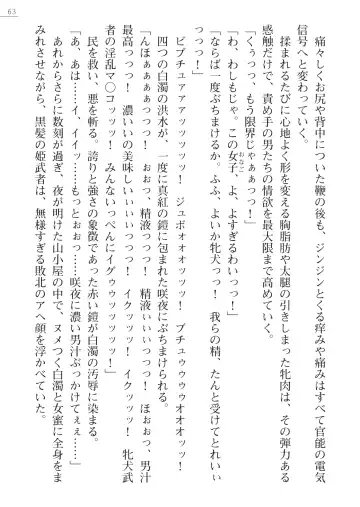 63
痛々しくお尻や背中についた鞭の後も、ジンジンとくる痒みや痛みはすべて官能の電気
信号へと変わっていく。
揉まれるたびに心地よく形を変える胸脂肪や太腿の引きしまった牝肉は、その弾力ある
感触だけで、責め手の男たちの情欲を最大限まで高めていく。
「くぅっっ、もう限界じゃぁぁっっ!」
「わ、わしもじゃ。この女子、よ、よすぎるわいっっ!」
おなご
「ならば一度ぶちまけるか。ふふ、よいか牝犬っっ! 我らの精、たんと食らうがいい
っっっ!」
ビブチュアァァァッッッッッ! ジュボオオオッッッ! ブチュウゥゥゥオオオッッ!
四つの白濁の洪水が、一度に真紅の鎧に包まれた咲夜にぶちまけられる。
「んほぁぁぁぁっっっ! ぉぉっ、精液っっっ! 精液ぃぃぃっっっ! ほぉぉっ、男汁
最高っっっ! 濃いいの美味しぃぃぃっっっ! イクッッッ! イクゥッッッ! 牝犬武
者の淫乱マ〇コッッッ! みんないっぺんにイグゥゥッッッッッ!」
民を救い、悪を斬る。誇りと強さの象徴であった赤い鎧が白濁の汚辱に染まる。
「あ、あは……イ、イィッ……もっとぉぉっ……咲夜に濃い男汁ぶっかけてぇぇ……」
あれからさらに数刻が過ぎ、夜が明けた山小屋の中で、ヌメつく白濁と女蜜に全身をま
みれさせながら、黒髪の姫武者は、無様すぎる敗北のアヘ顔を浮かべていた。